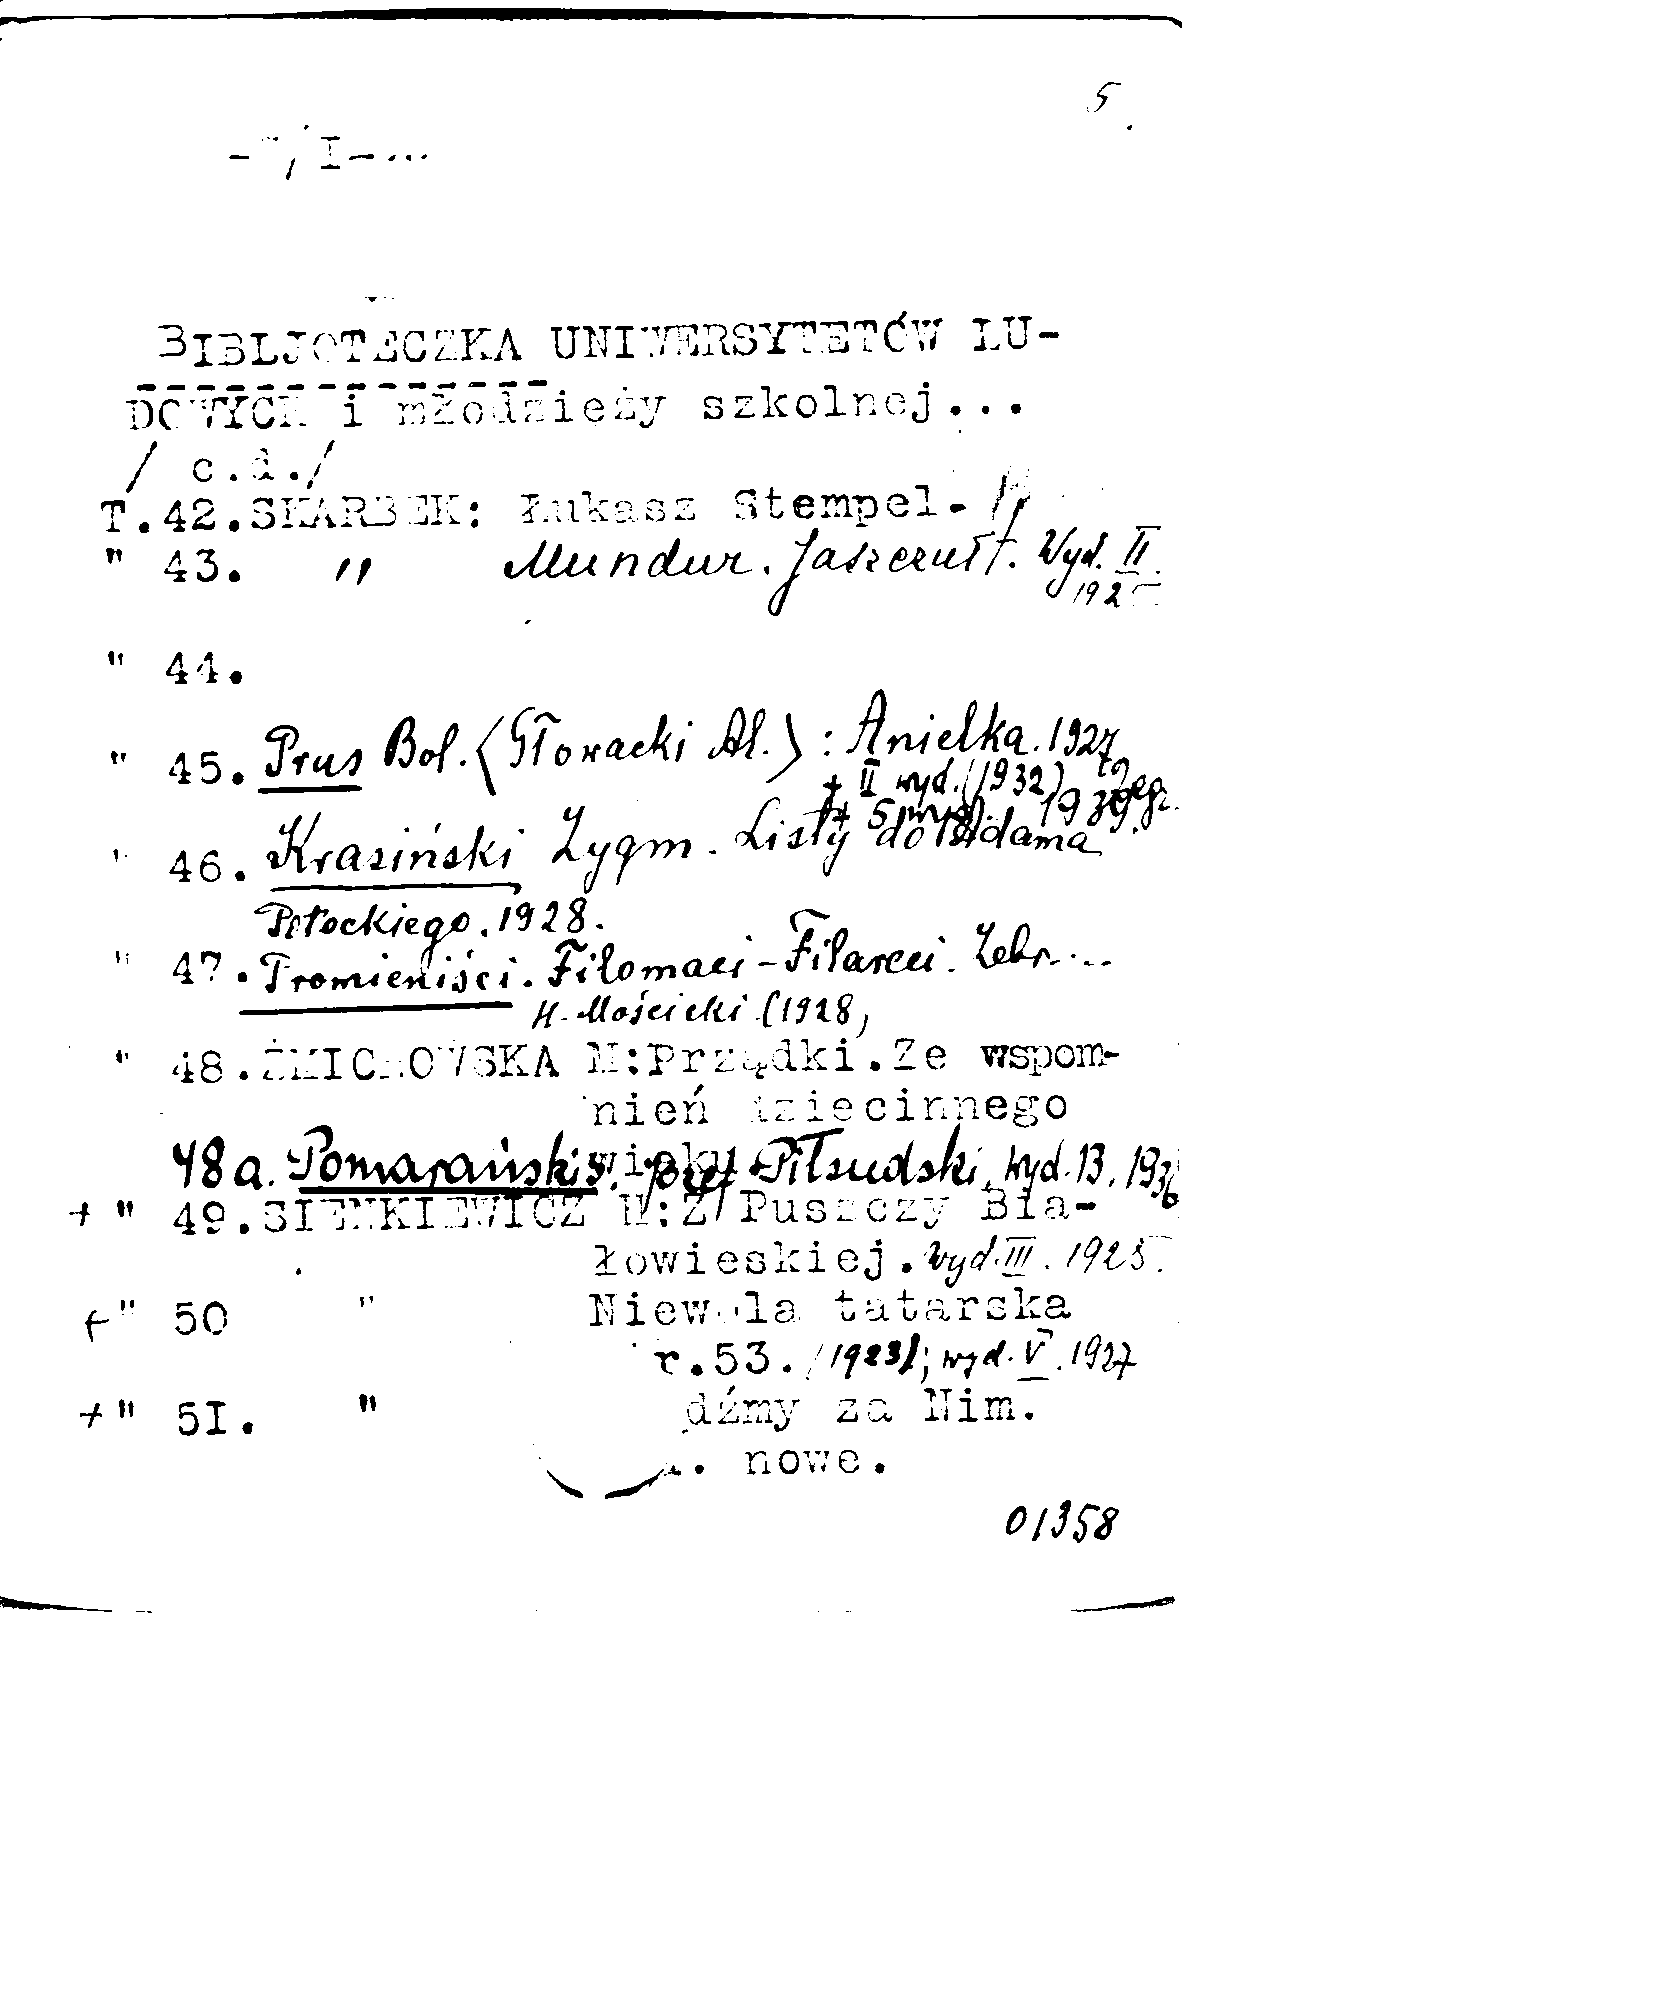 5.
BIBLJOTECZKA UNIWERSYTETÓW LU-
DOWYCH i młodzieży szkolnej...
/ c.d./
T.42.SKARBEK: Łukasz Stempel.
" 43. " Mundur. Jaszczułt. Wyd. II.
192
" 44.
" 45. Prus Bol. (Głowacki Al.) : Anielka. 1927
+ II wyd. (1932)
1939.
" 46. Krasiński Zygm. Listy do Adama
Potockiego. 1928.
" 47. Promieniści. Filomaci-Filareci. Zebr....
H. Mościcki (1928)
" 48.ŻMICHOWSKA N:Prządki.Ze wspom-
nień dziecinnego
wieku.
48a. Pomarański S. Józef Piłsudski, wyd. 13. 1936
+ " 49.SIENKIEWICZ H:Z Puszczy Bia-
łowieskiej. Wyd. III. 1925.
+ " 50 " Niewola tatarska
r.53. /1923/; wyd. V. 1927
+ " 5I. " dźmy za Nim.
. nowe.
01358